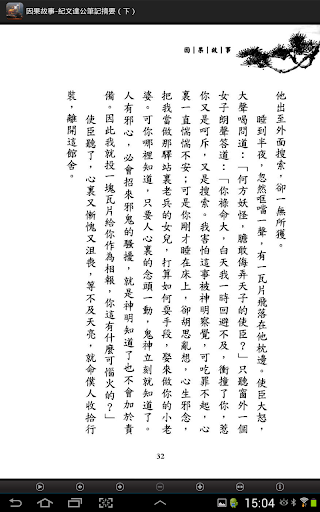 因果故事-紀文達公筆記摘要（下）
因果故事
他出至外面搜索，卻一無所獲。
睡到半夜，忽然哐噹一聲，有一瓦片飛落在他枕邊。使臣大怒，
大聲喝問道：「何方妖怪，膽敢侮弄天子的使臣？」只聽窗外一個
女子朗聲答道：「你祿命大，白天我一時回避不及，衝撞了你，惹
你又是呵斥，又是搜索。我害怕這事被神明察覺，可吃罪不起，心
裏一直惴惴不安；可是你剛才睡在床上，卻胡思亂想，心生邪念，
把我當做那驛站裏老兵的女兒，打算如何耍手段，娶來做你的小老
婆。可你哪裡知道，只要人心裏的念頭一動，鬼神立刻就知道了。
人有邪心，必會招來邪鬼的騷擾，就是神明知道了也不會加於責
備。因此我就投一塊瓦片給你作為相報，你這有什麼可惱火的？」
使臣聽了，心裏又慚愧又沮喪，等不及天亮，就命僕人收拾行
裝，離開這館舍。
32
15:04